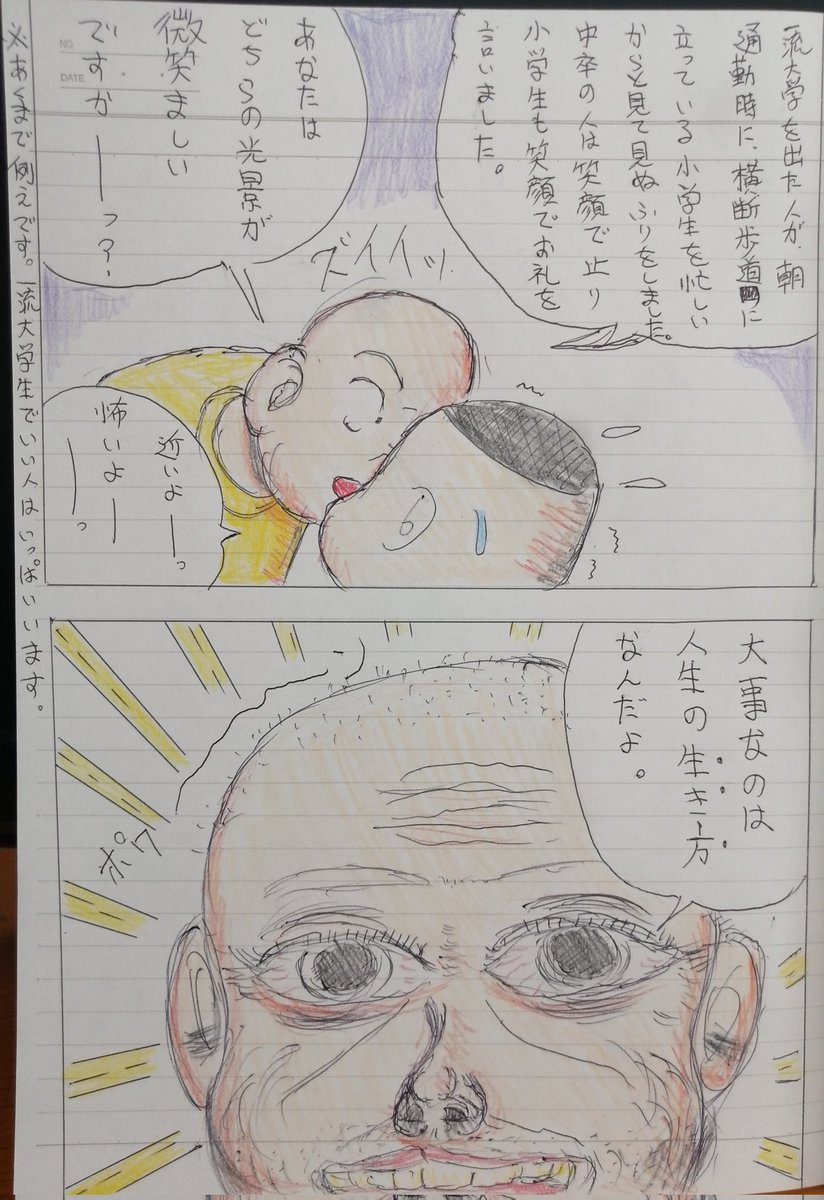 一流大学を出た人が、朝
通勤時に、横断歩道に
立っている小学生を忙しい
からと見て見ぬふりをしました。
中卒の人は笑顔で止り
小学生も笑顔でお礼を
言いました。
あなたは
どちらの光景が
微笑ましい
ですかーっ？
NO.
DATE
ズイイッ
近いよーっ
怖いよー
ーっ
大事なのは
人生の生き方
なんだよ。
ポワ
※あくまで例えです。一流大学生でいい人はいっぱいいます。